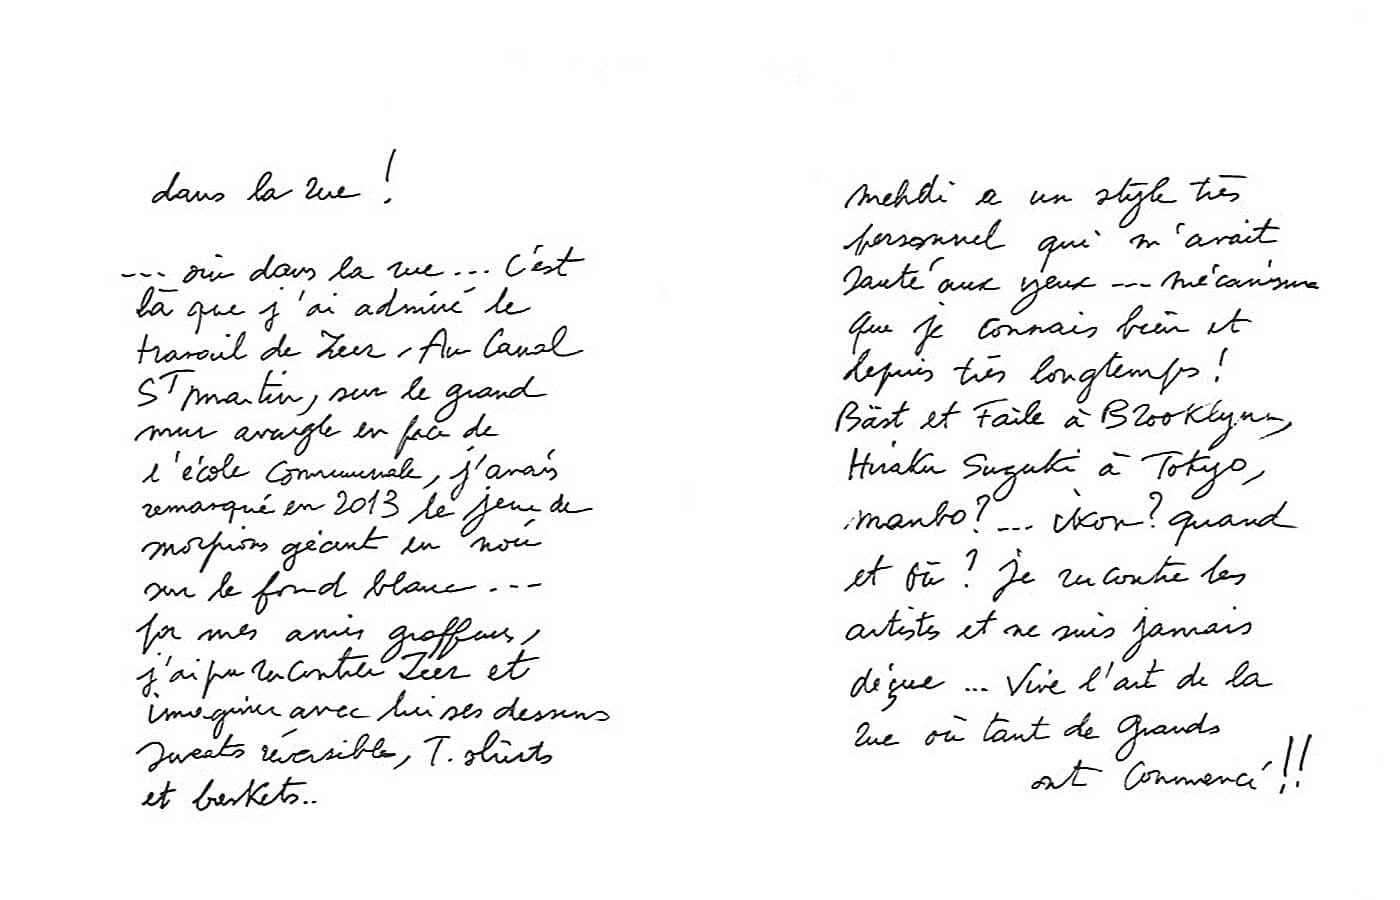 dans la rue !
--- oui dans la rue ... C'est
là que j'ai admiré le
travail de Zeer. Au Canal
ST Martin, sur le grand
mur aveugle en face de
l'école Communale, j'avais
remarqué en 2013 le jeu de
morpions géant en noir
sur le fond blanc ---
par mes amis graffeurs,
j'ai pu rencontrer Zeer et
imaginer avec lui ses dessins
sweats réversible, T. shirts
et baskets..
Mehdi a un style très
personnel qui m'avait
sauté aux yeux --- mécanisme
que je connais bien et
depuis très longtemps !
Bäst et Faile à Brooklyn,
Hiraku Suzuki à Tokyo,
manbo? ... ikon? quand
et où ? je rencontre les
artistes et ne suis jamais
déçue ... Vive l'art de la
rue où tant de grands
ont commencé !!